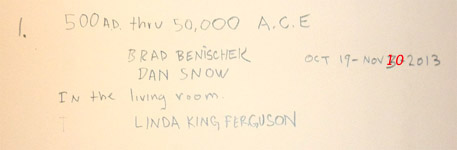 1. 500 AD. thru 50,000 A.C.E
BRAD BENISCHEK OCT 19-NOV 10 2013
DAN SNOW
IN the living room.
LINDA KING FERGUSON